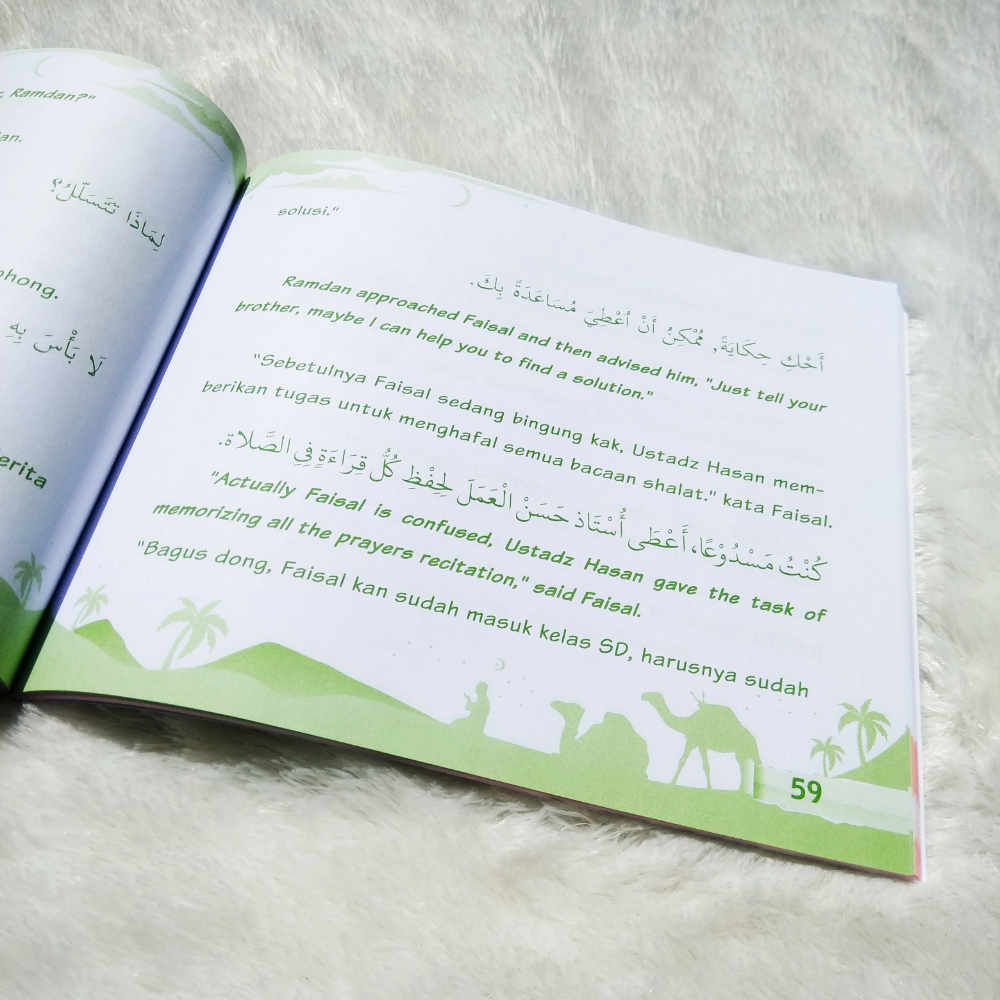 , Ramdan?"
an.
لِمَاذَا تَتَسَلَّلُ؟
ohong.
لَا بَأْسَ بِهِ
erita
solusi."
أَحْكِ حِكَايَةً, مُمْكِنُ أَنْ أُعْطِيَ مُسَاعَدَةً بِكَ.
Ramdan approached Faisal and then advised him, "Just tell your
brother, maybe I can help you to find a solution."
"Sebetulnya Faisal sedang bingung kak, Ustadz Hasan mem-
berikan tugas untuk menghafal semua bacaan shalat." kata Faisal.
كُنْتُ مَسْدُوْعًا، أَعْطَى أُسْتَاذ حَسَنْ الْعَمَلَ لِحِفْظِ كُلُّ قِرَاءَةٍ فِي الصَّلاة.
"Actually Faisal is confused, Ustadz Hasan gave the task of
memorizing all the prayers recitation," said Faisal.
"Bagus dong, Faisal kan sudah masuk kelas SD, harusnya sudah
59